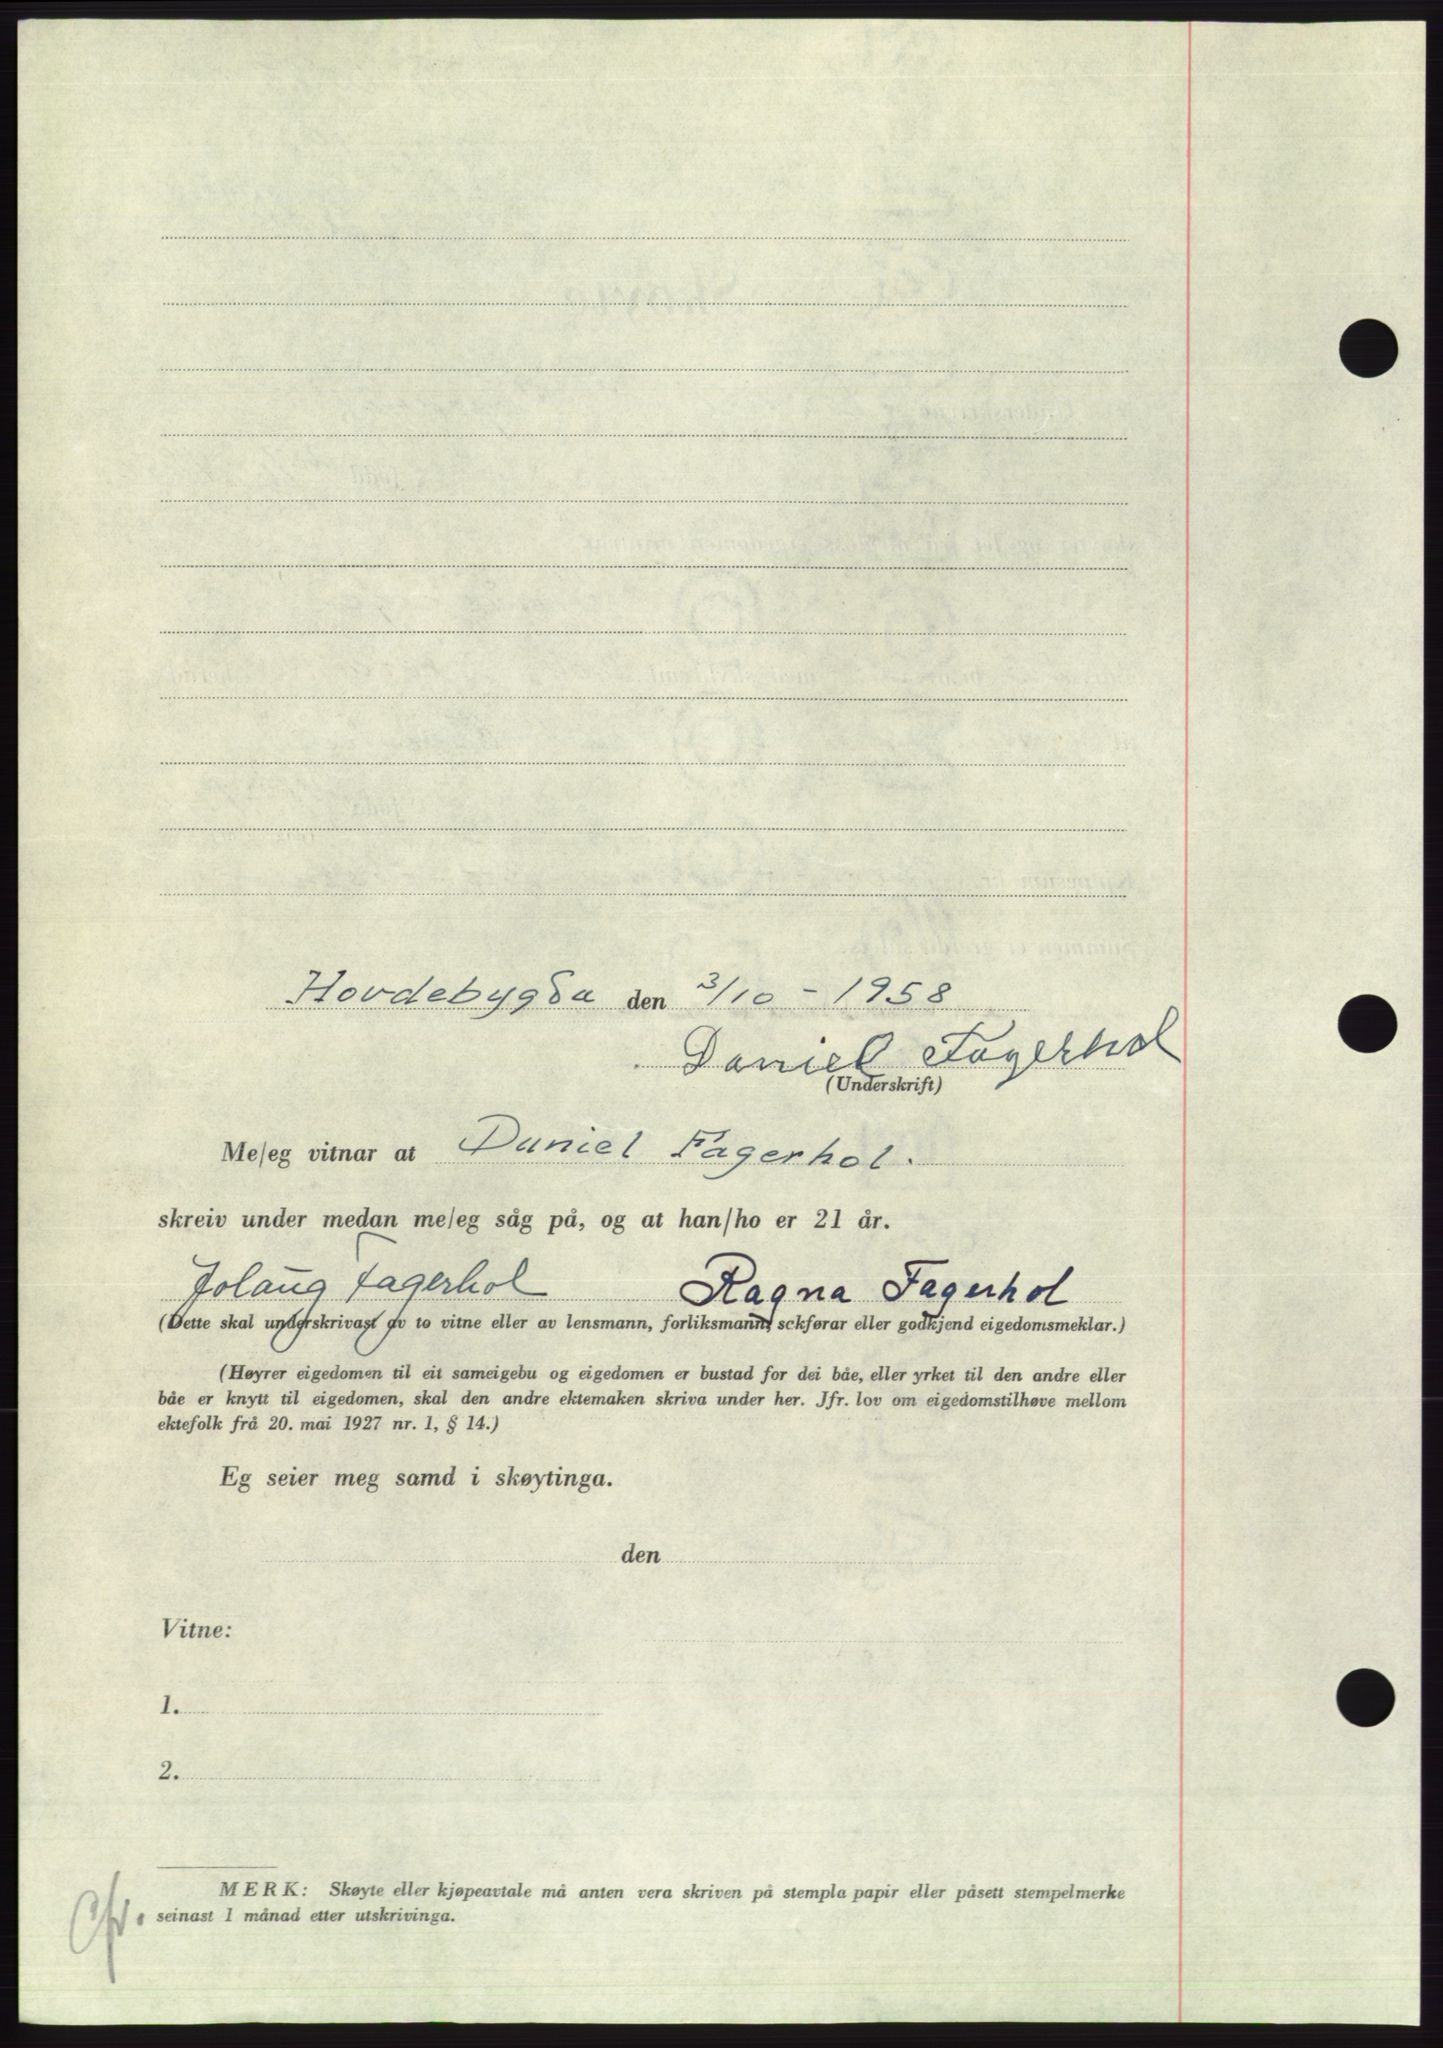 Hovdebygda den 3/10 - 1958
Daniel Fagerhol
(Underskrift)
Me/eg vitnar at Daniel Fagerhol.
skreiv under medan me/eg såg på, og at han/ho er 21 år.
Jolaug Fagerhol Ragna Fagerhol
(Dette skal underskrivast av to vitne eller av lensmann, forliksmann, sckførar eller godkjend eigedomsmeklar.)
(Høyrer eigedomen til eit sameigebu og eigedomen er bustad for dei båe, eller yrket til den andre eller
båe er knytt til eigedomen, skal den andre ektemaken skriva under her. Jfr. lov om eigedomstilhøve mellom
ektefolk frå 20. mai 1927 nr. 1, § 14.)
Eg seier meg samd i skøytinga.
den
Vitne:
1.
2.
MERK: Skøyte eller kjøpeavtale må anten vera skriven på stempla papir eller påsett stempelmerke
seinast 1 månad etter utskrivinga.